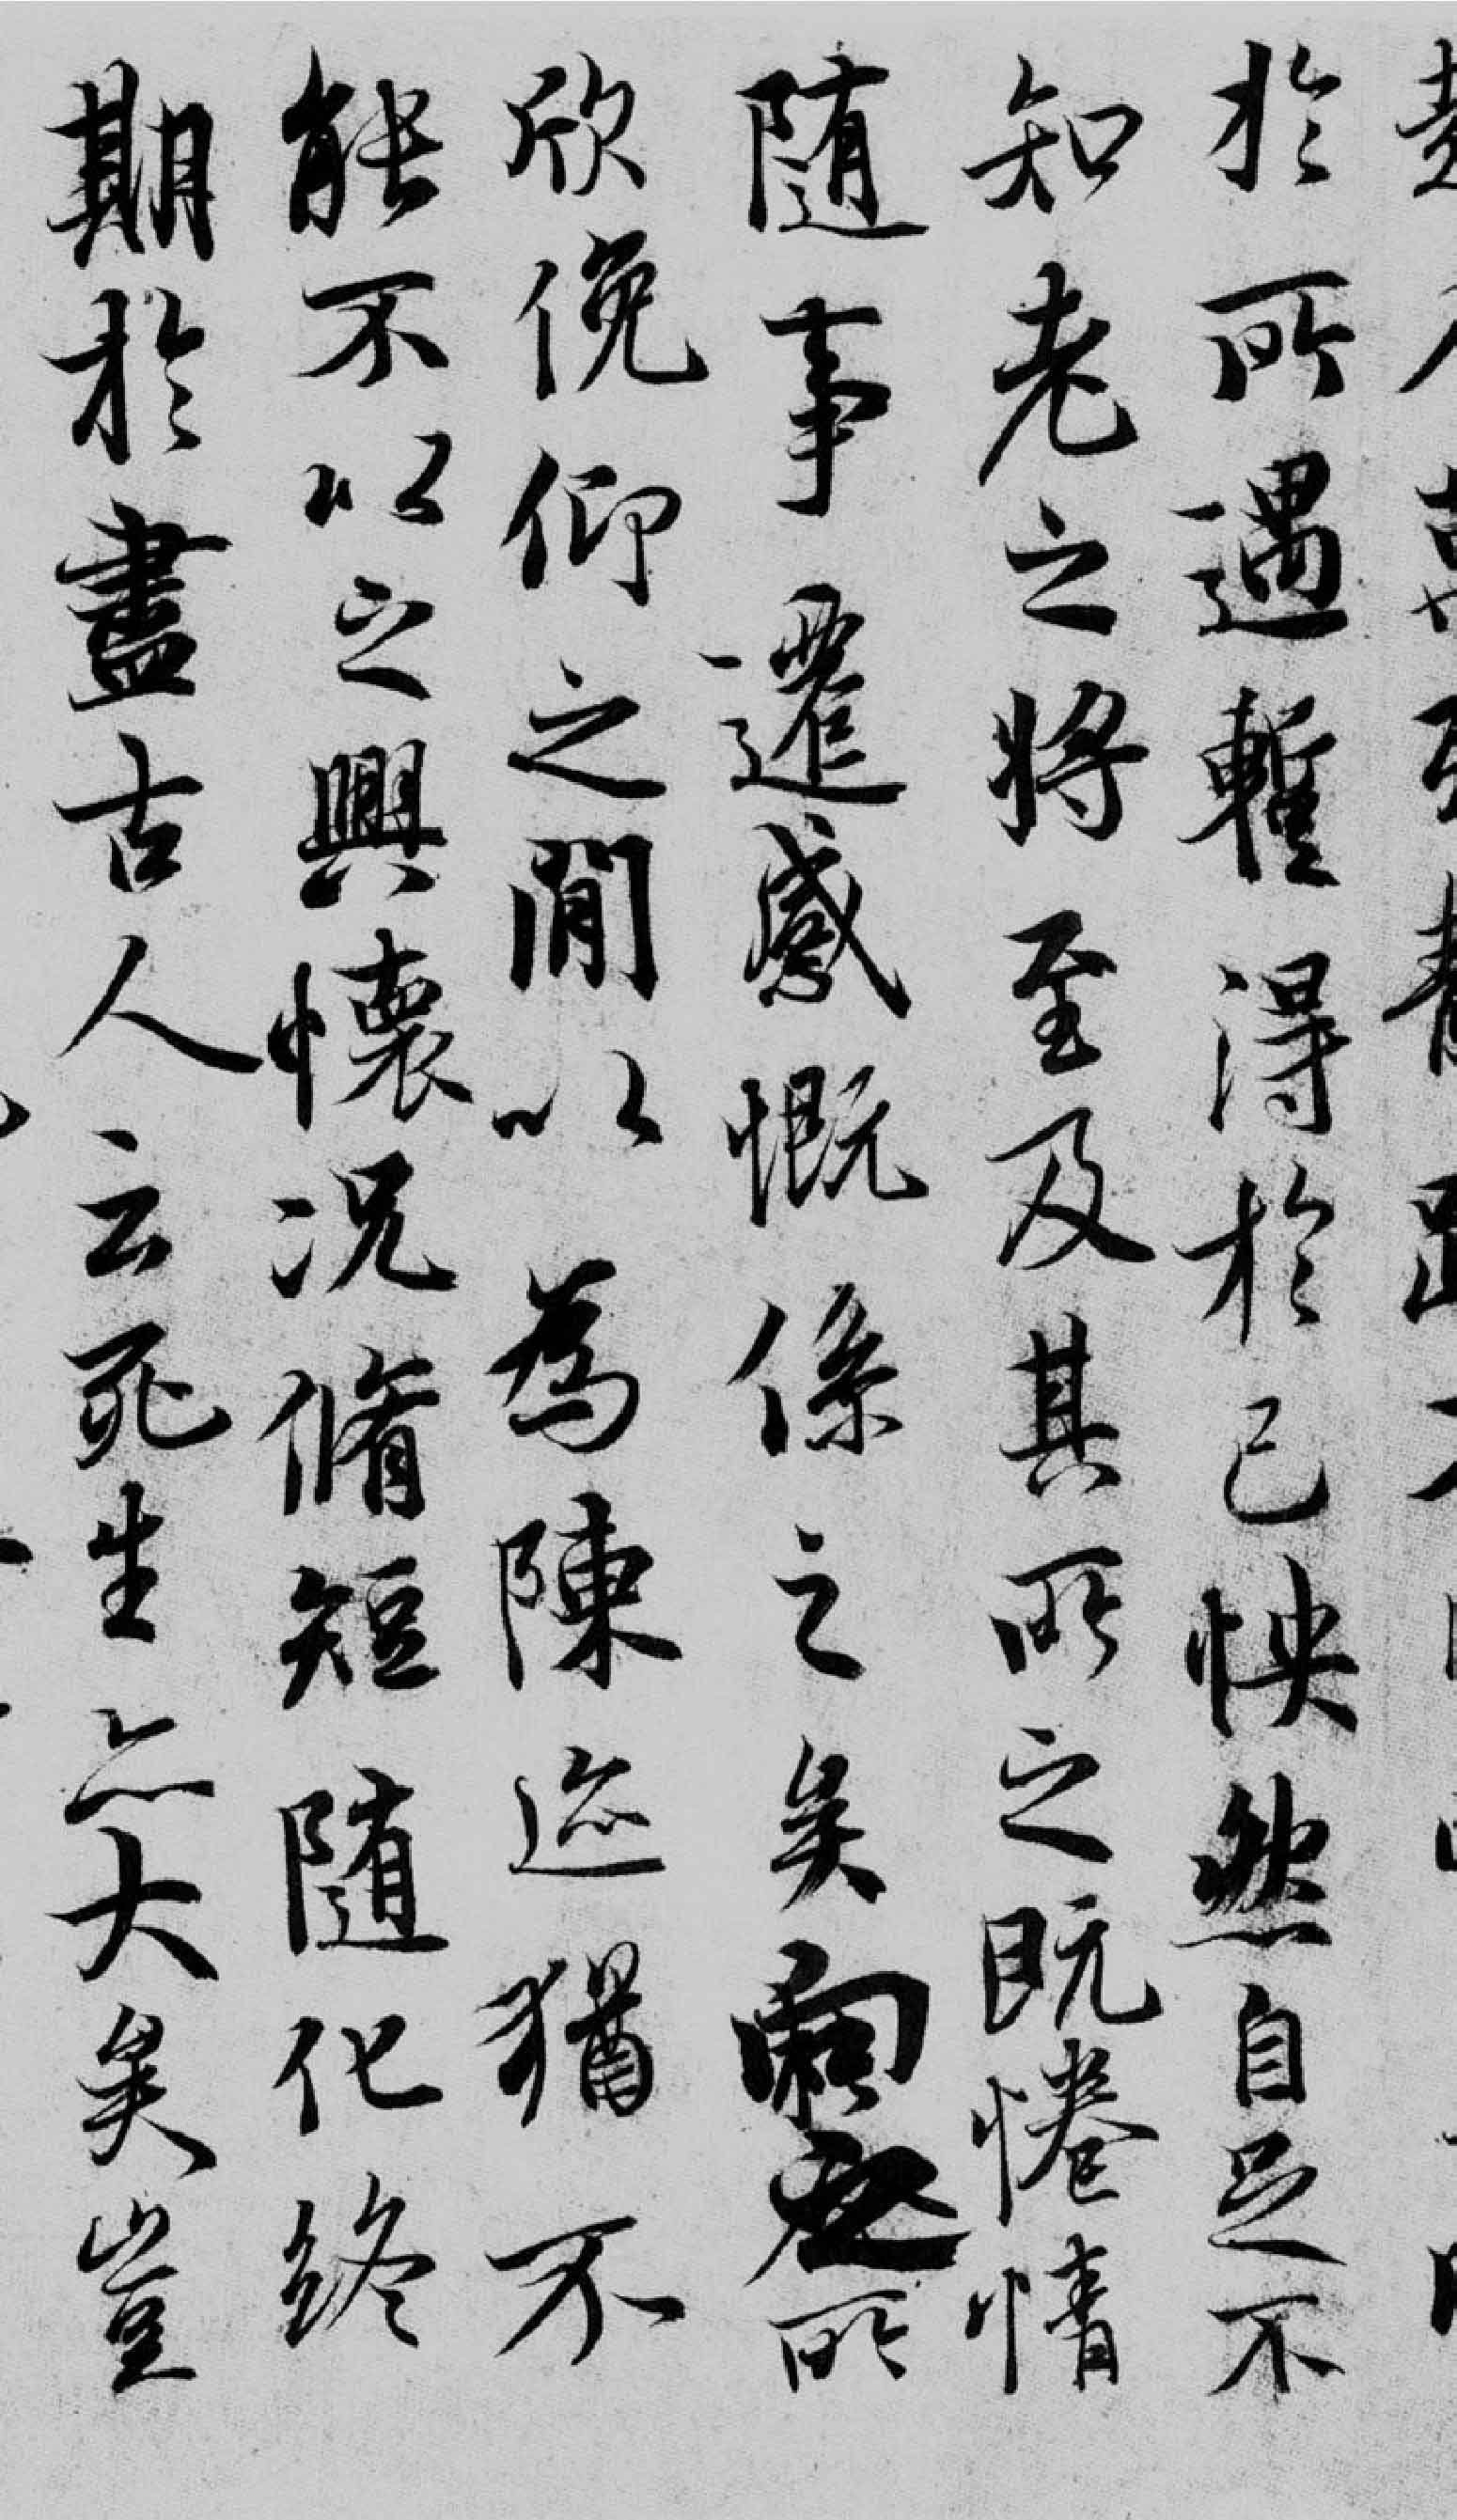 於所遇暫得於己怏然自足不
知老之將至及其所之既惓情
随事遷感慨係之矣向之所
欣俛仰之閒以為陳迹猶不
能不以之興懷況脩短随化終
期於盡古人云死生亦大矣豈